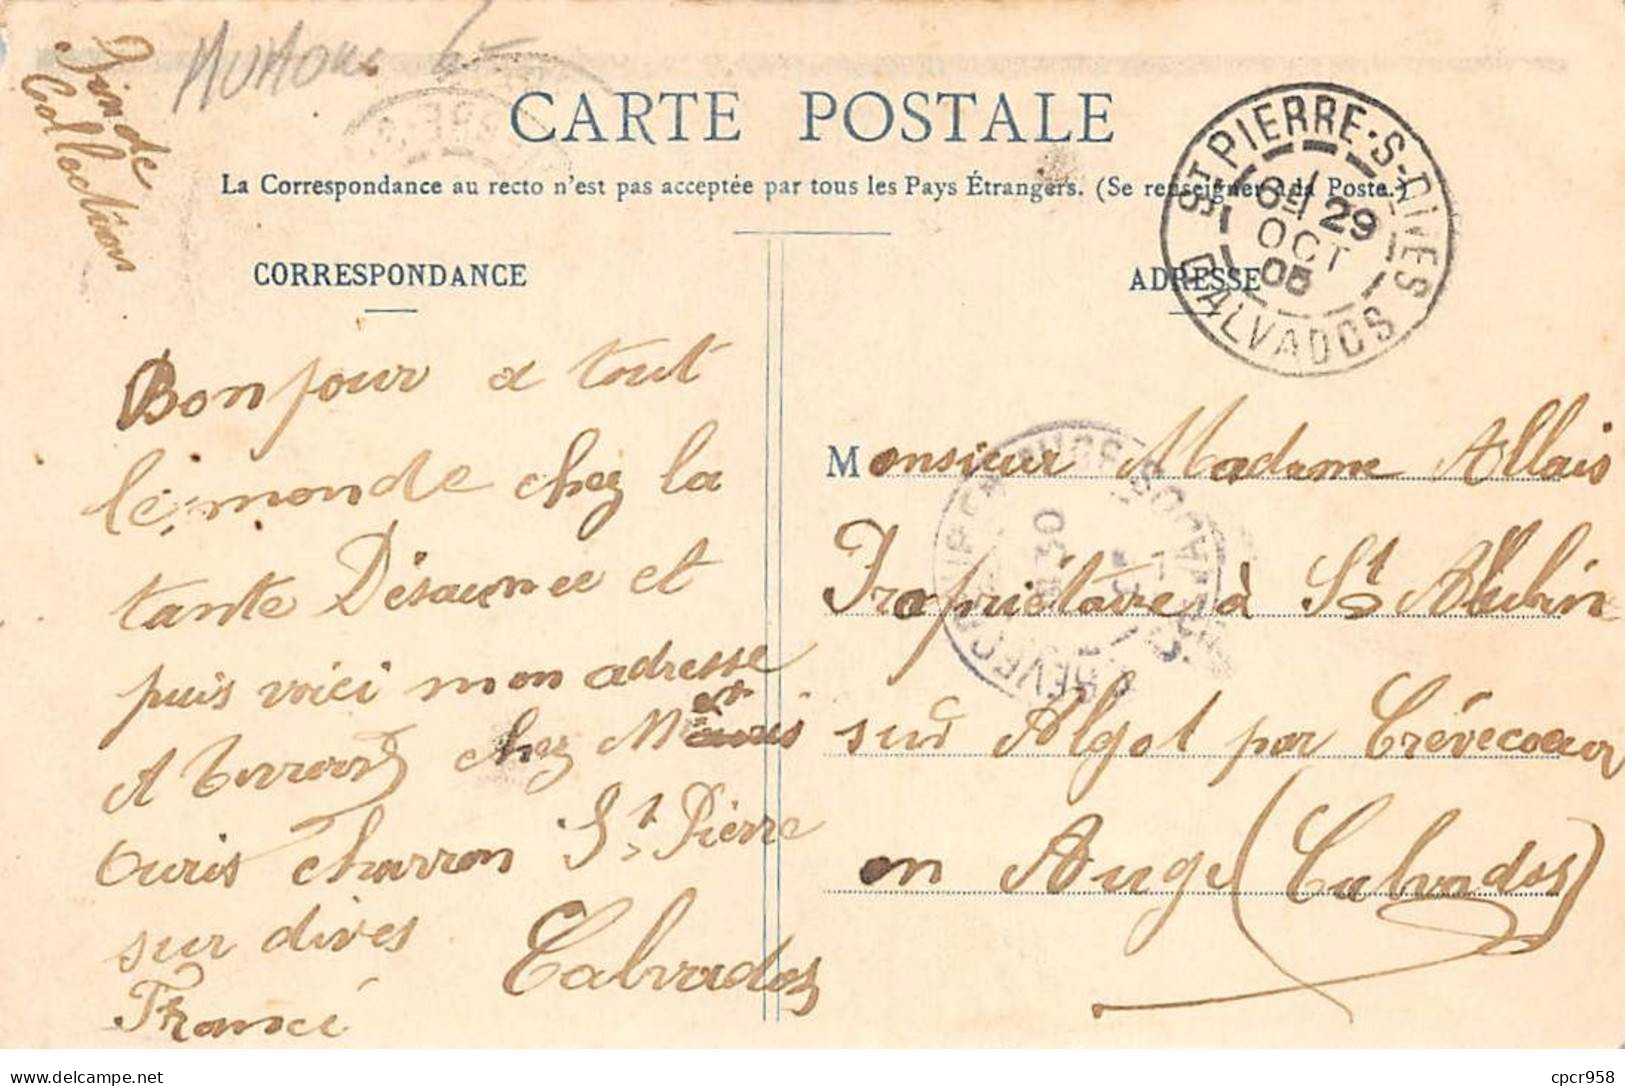 Fin de
Collection
CARTE POSTALE
La Correspondance au recto n'est pas acceptée par tous les Pays Étrangers. (Se renseigner à la Poste.)
CORRESPONDANCE
ADRESSE
ST PIERRE-S-DIVES
6E 29
OCT
05
CALVADOS
Bonjour a tout
le monde chez la
tante Désaunee et
puis voici mon adresse
A chez Mr
ouris charron St Pierre
sur dives
Calvados
France
Monsieur Madame Allais
Propriétaire à St Aubin
sur Algot par Crévecoeur
en Auge (Calvados)
cpcr958